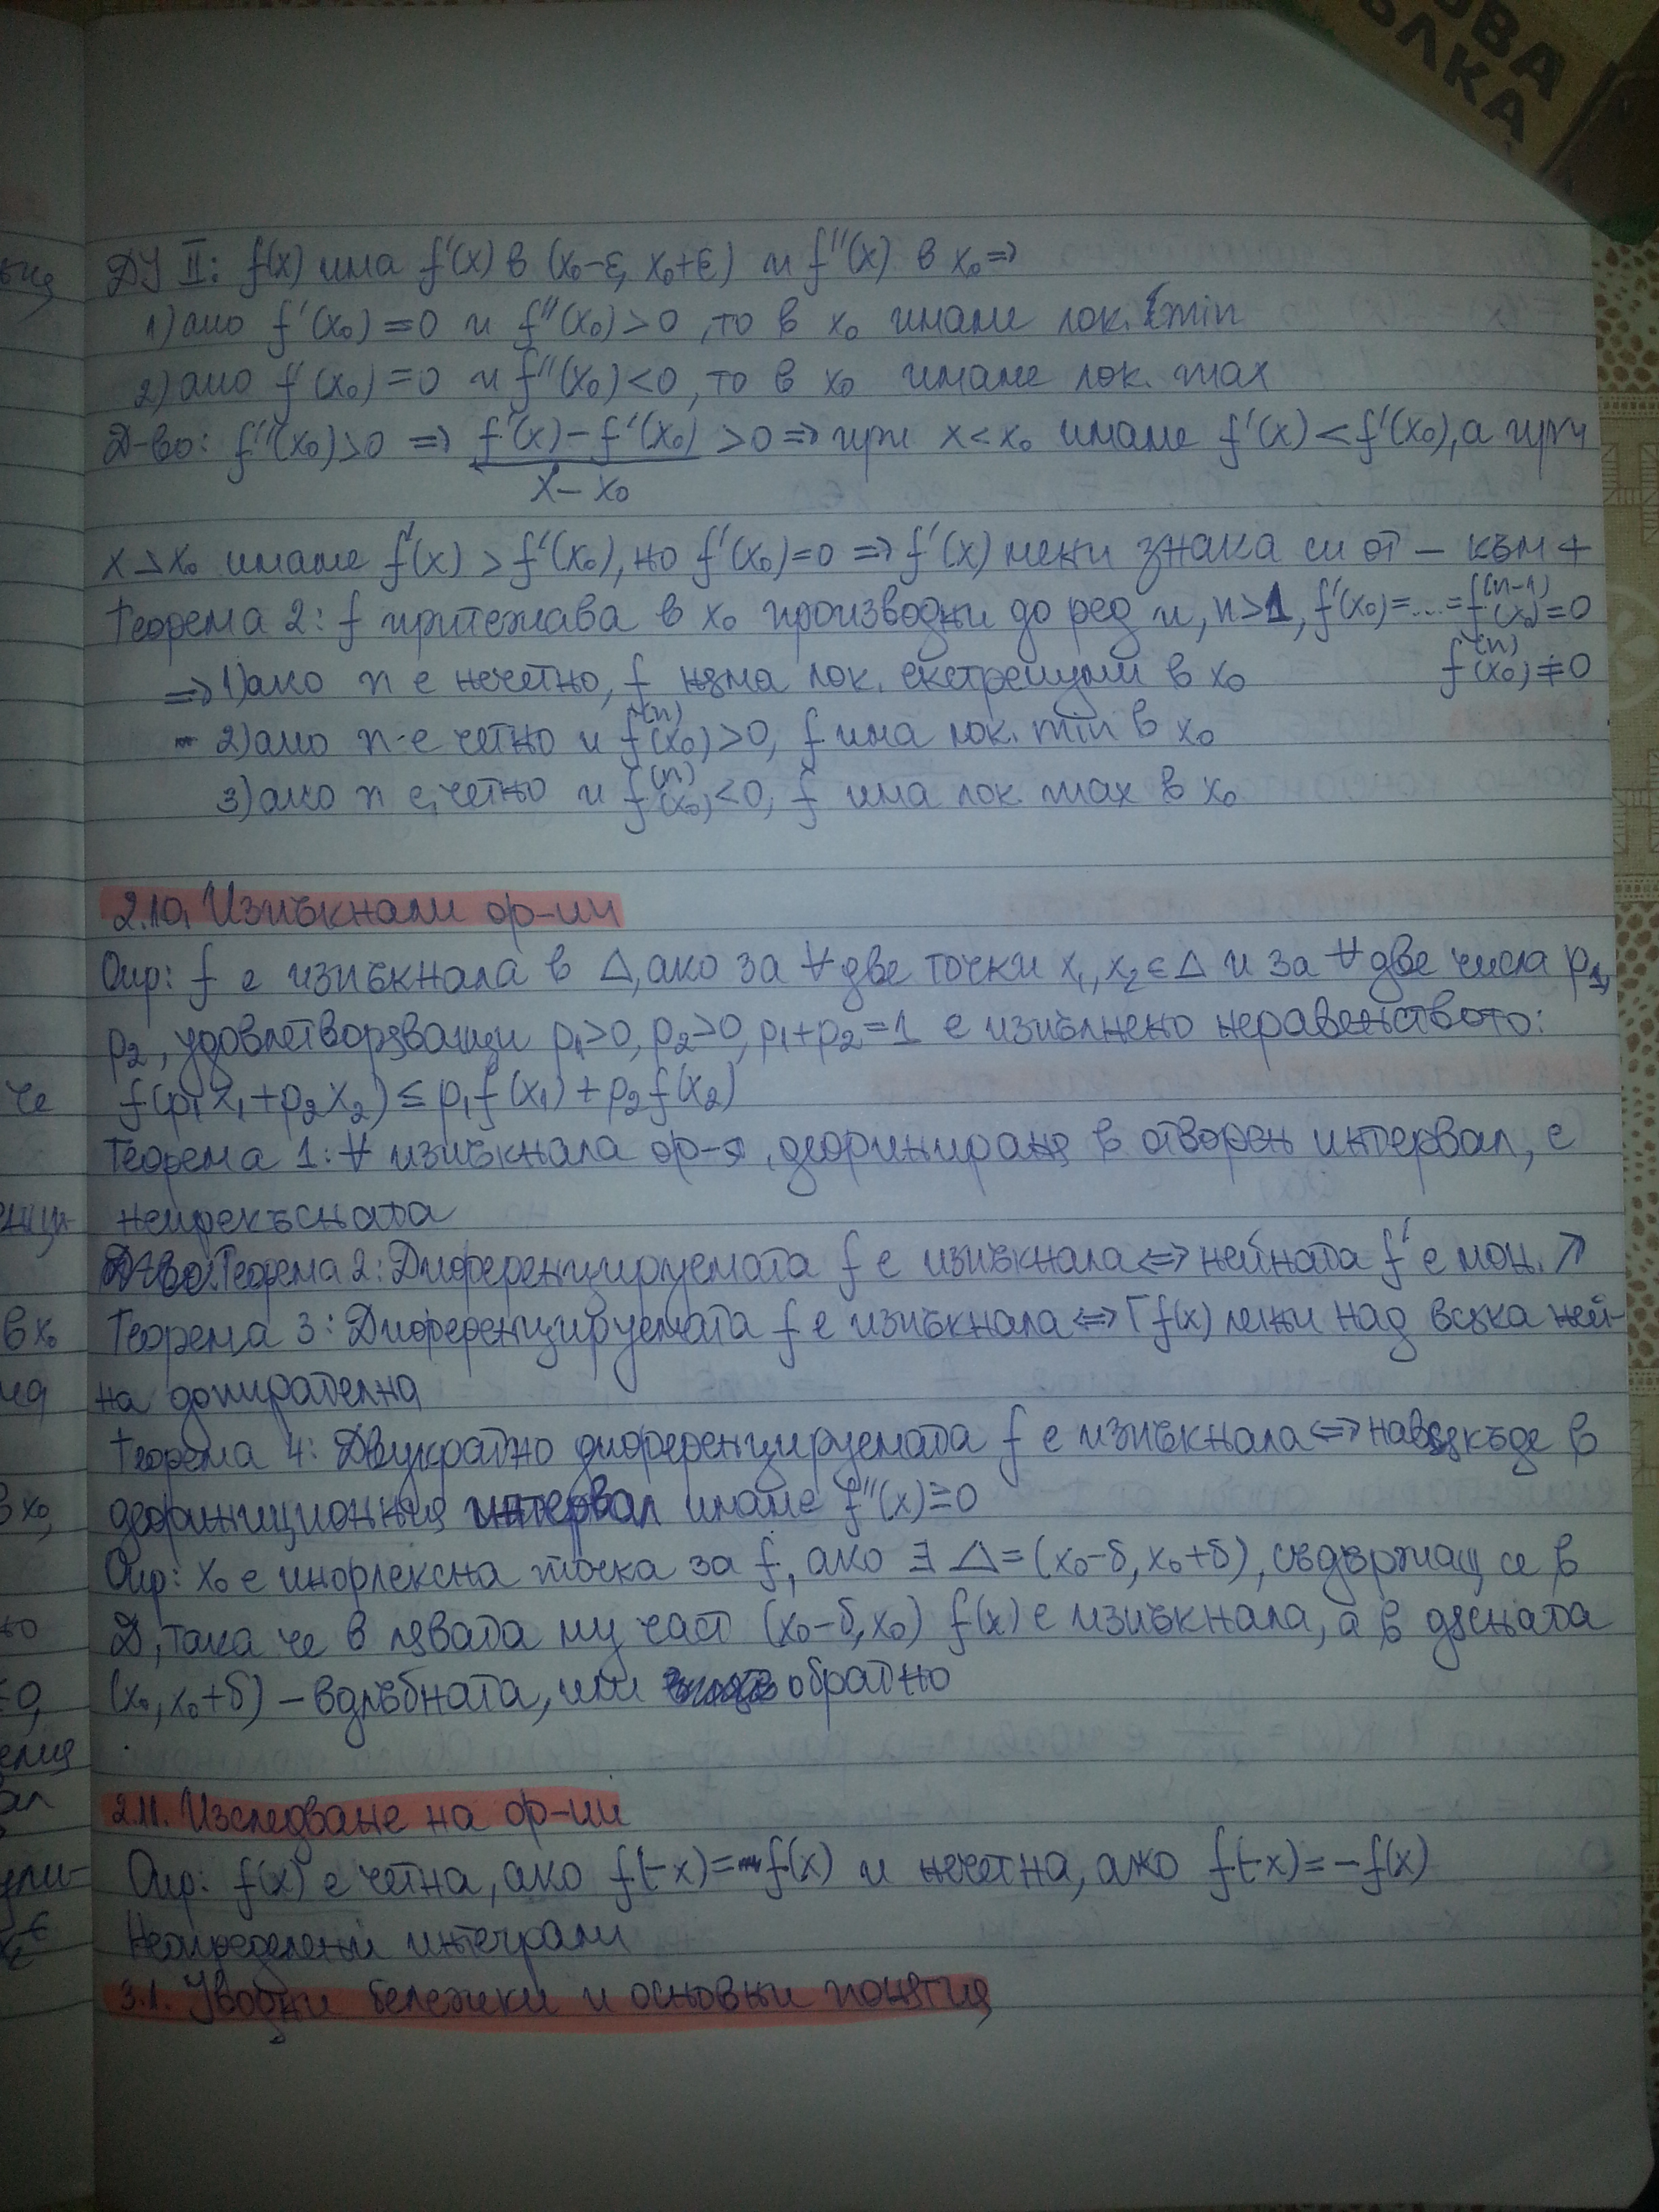 ОВА
ЪЛКА
ДУ II: f(x) има f'(x) в (x₀-ε, x₀+ε) и f''(x) в x₀ ⇒
1) ако f'(x₀)=0 и f''(x₀)>0, то в x₀ имаме лок. min
2) ако f'(x₀)=0 и f''(x₀)<0, то в x₀ имаме лок. max
Д-во: f''(x₀)>0 ⇒ (f'(x)-f'(x₀))/(x-x₀) >0 ⇒ при x<x₀ имаме f'(x)<f'(x₀), а при
x>x₀ имаме f'(x)>f'(x₀), но f'(x₀)=0 ⇒ f'(x) мени знака си от - към +
Теорема 2: f притежава в x₀ производни до ред n, n>1, f'(x₀)=...=f⁽ⁿ⁻¹⁾(x₀)=0
⇒ 1) ако n е нечетно, f няма лок. екстремуми в x₀ f⁽ⁿ⁾(x₀)≠0
2) ако n е четно и f⁽ⁿ⁾(x₀)>0, f има лок. min в x₀
3) ако n е четно и f⁽ⁿ⁾(x₀)<0, f има лок. max в x₀
2.10. Изпъкнали ф-ии
Опр: f е изпъкнала в Δ, ако за ∀ две точки x₁, x₂ ∈ Δ и за ∀ две числа p₁,
че p₂, удовлетворяващи p₁>0, p₂>0, p₁+p₂=1 е изпълнено неравенството:
f(p₁x₁+p₂x₂) ≤ p₁f(x₁)+p₂f(x₂)
Теорема 1: ∀ изпъкнала ф-я, дефинирана в отворен интервал, е
непрекъсната
Теорема 2: Диференцируемата f е изпъкнала ⇔ нейната f' е мон. ↗
в x₀ Теорема 3: Диференцируемата f е изпъкнала ⇔ Γf(x) лежи над всяка ней-
на допирателна
Теорема 4: Двукратно диференцируемата f е изпъкнала ⇔ навсякъде в
дефиниционния интервал имаме f''(x)≥0
Опр: x₀ е инфлексна точка за f, ако ∃ Δ=(x₀-δ, x₀+δ), съдържащ се в
D, така че в лявата му част (x₀-δ, x₀) f(x) е изпъкнала, а в дясната
(x₀, x₀+δ) - вдлъбната, или обратно
2.11. Изследване на ф-ии
Опр: f(x) е четна, ако f(-x)=f(x) и нечетна, ако f(-x)=-f(x)
Неопределени интеграли
3.1. Уводни бележки и основни понятия